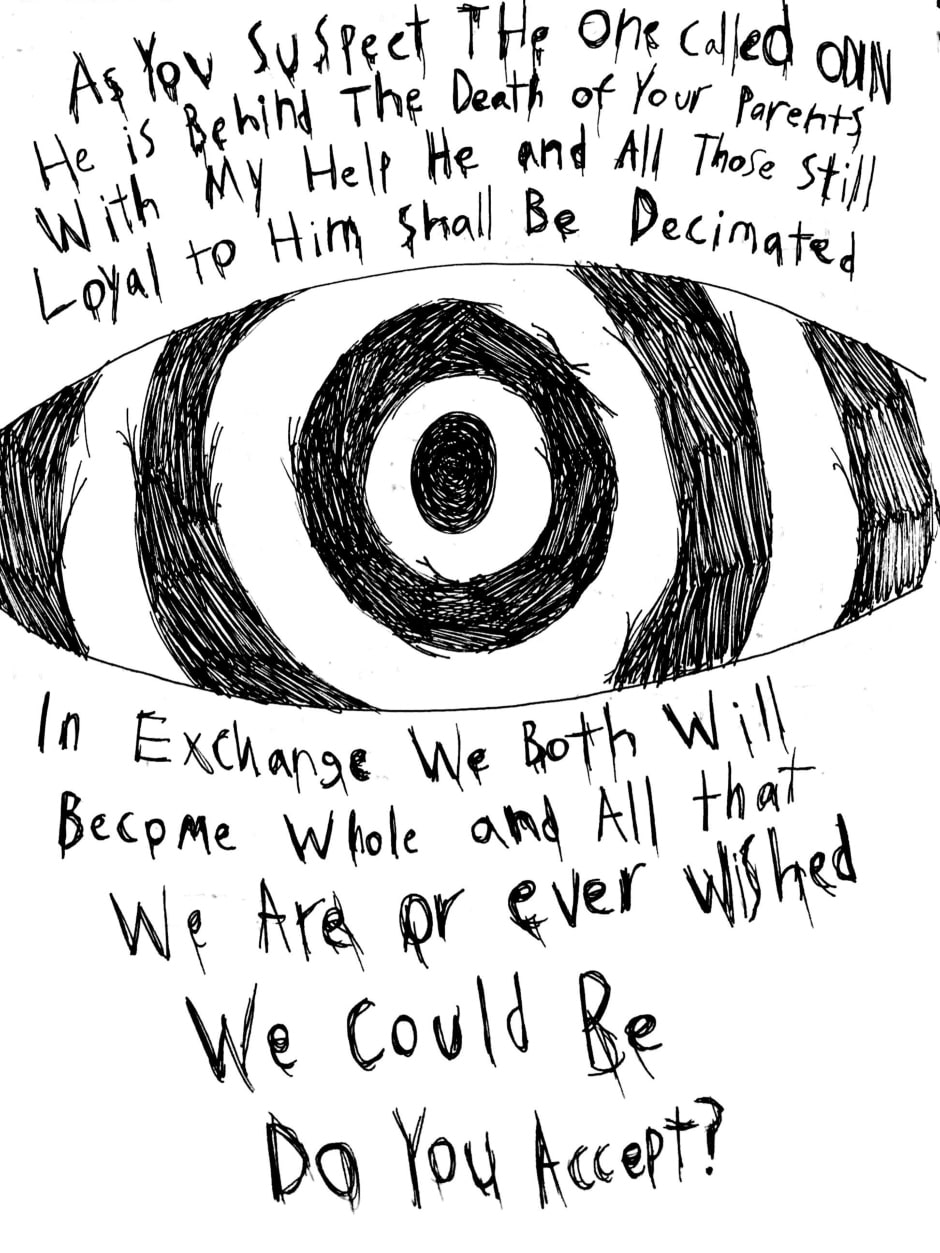 As You Suspect The One Called ODIN
He is Behind The Death of Your Parents
With My Help He and All Those Still
Loyal to Him Shall Be Decimated
In Exchange We Both Will
Become Whole and All that
We Are or ever Wished
We Could Be
Do You Accept?